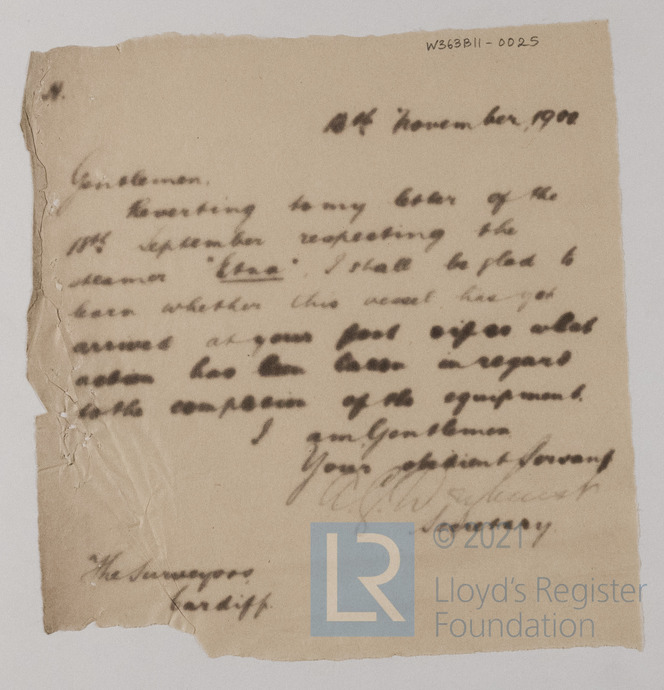 W363B11-0025
November, 1900
Gentlemen,
Reverting to my letter of the
18th September respecting the
steamer "Etna", I shall be glad to
learn whether this vessel has yet
arrived at your port & if so what
action has been taken in regard
to the completion of the equipment.
I am, Gentlemen
Your obedient Servant
Secretary
The Surveyors,
Cardiff.
LR
© 2021
Lloyd's Register
Foundation